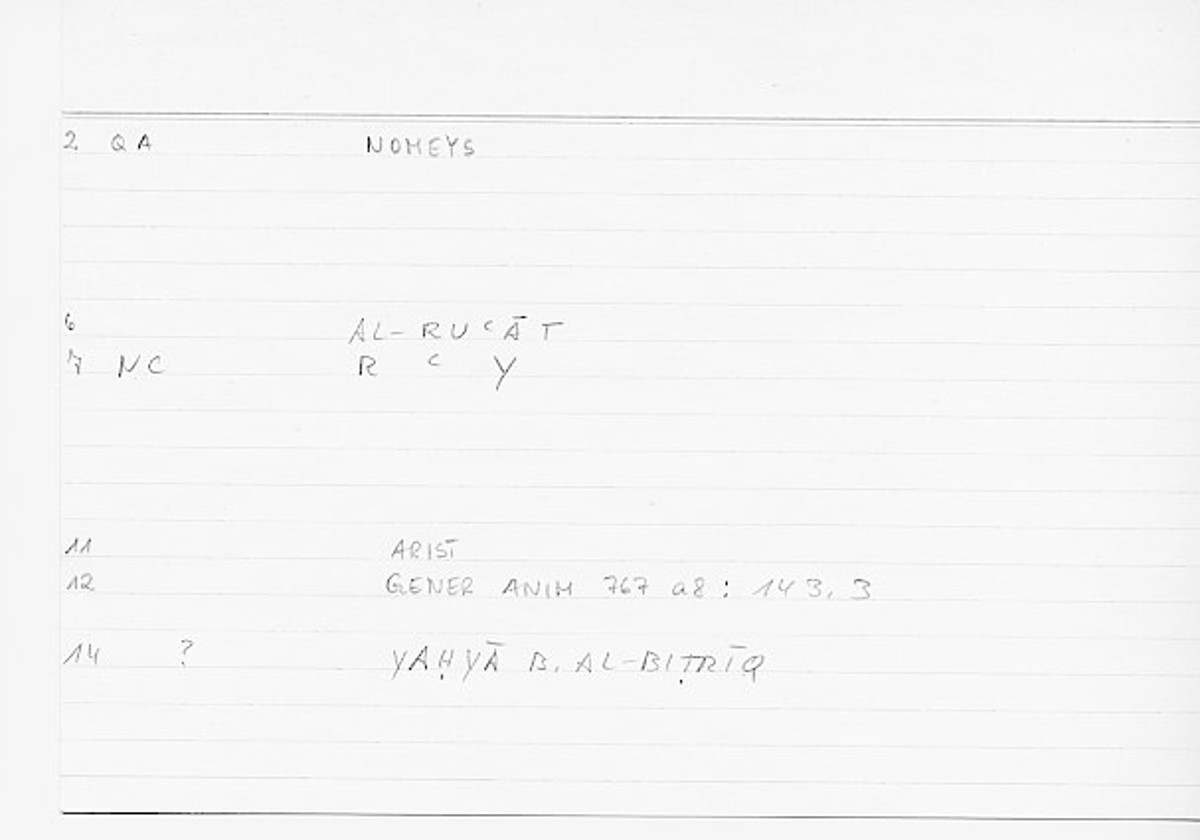 2 QA NOMEYS
6 AL-RUᶜĀT
7 NC R ᶜ Y
11 ARIST
12 GENER ANIM 767 a8 : 143,3
14 ? YAḤYĀ B. AL-BIṬRĪQ